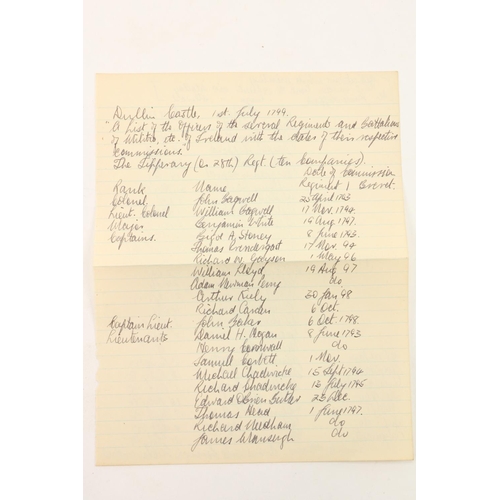 Dublin Castle, 1st July 1799.
"A List of the Officers of the several Regiments and Battalions
of Militia, etc." of Ireland with the dates of their respective
Commissions."
The Tipperary (or 28th) Regt. (ten Companies).
Date of Commission
Rank Name Regiment | Brevet.
Colonel John Bagwell 23 April 1793
Lieut. Colonel William Bagwell 17 Nov. 1794.
Major Benjamin White 19 Aug 1797.
Captains. A. Stoney 8 June 1793.
Thomas Prendergast 17 Nov. 94
Richard W. 1 May 96
William Lloyd 19 Aug 97
Adam Newman do
Arthur Kiely 30 Jan 98
Richard Carden 6 Oct.
Captain Lieut. John Baker 6 Oct 1798.
Lieutenants Daniel H. 8 June 1793
Henry Cornwall do
Samuel Corbett 1 Nov.
Michael Chadwicke 15 Sept 1794
Richard Shadwicke 16 July 1795
Edward Butler 23 Dec.
Thomas Head 1 June 1797.
Richard Needham do
James Mansergh do